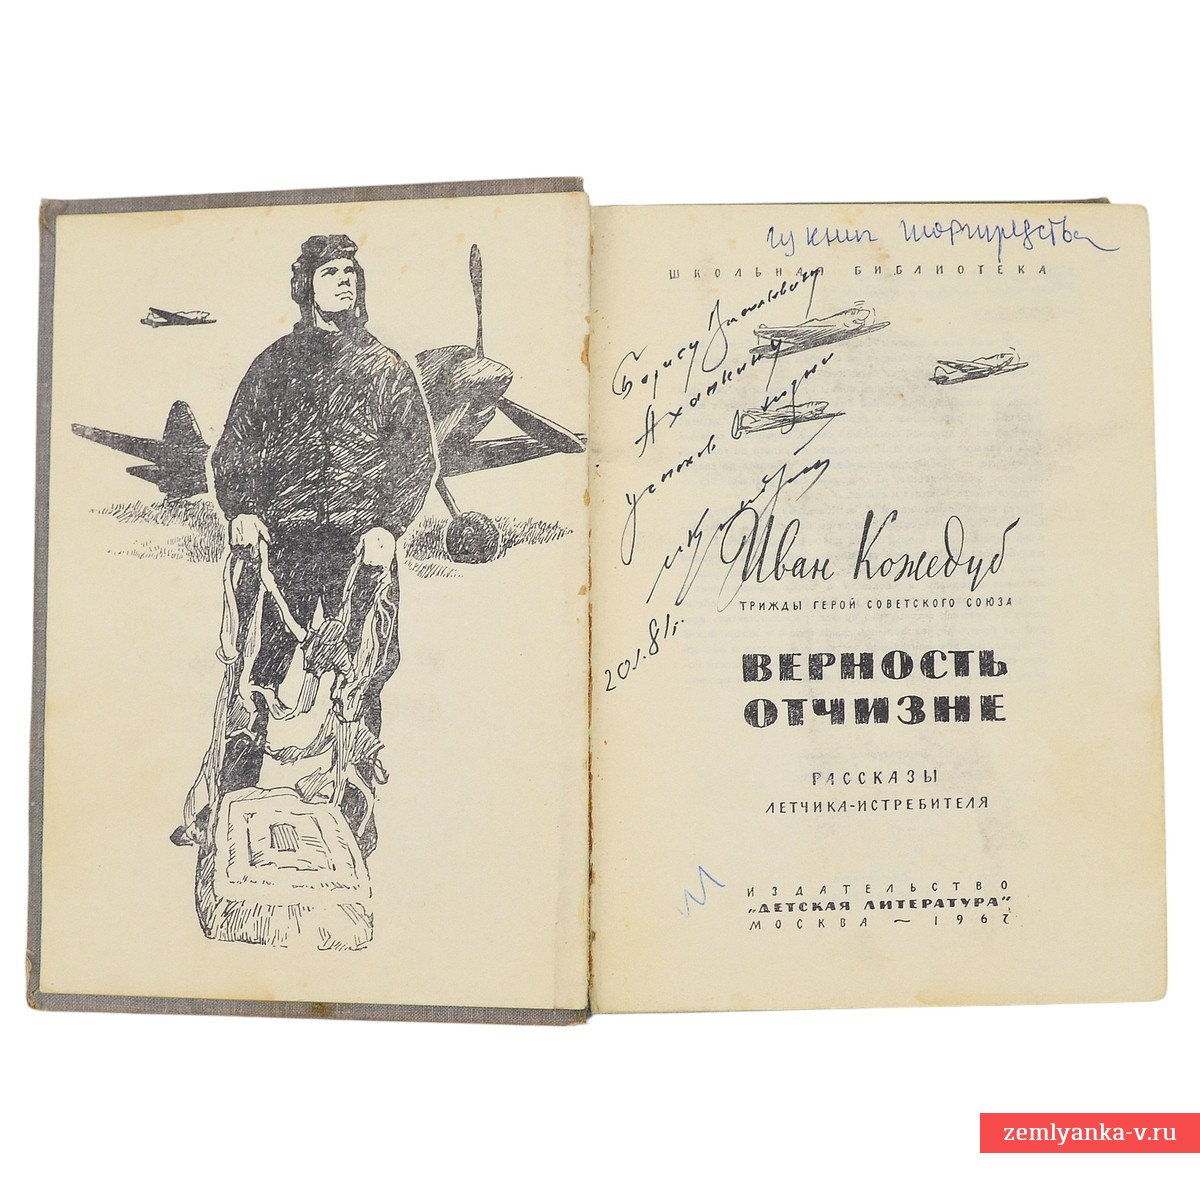 из книг
ШКОЛЬНАЯ БИБЛИОТЕКА
Борису
успехов в жизни
20.1.81г.
Иван Кожедуб
ТРИЖДЫ ГЕРОЙ СОВЕТСКОГО СОЮЗА
ВЕРНОСТЬ
ОТЧИЗНЕ
РАССКАЗЫ
ЛЕТЧИКА-ИСТРЕБИТЕЛЯ
ИЗДАТЕЛЬСТВО
„ДЕТСКАЯ ЛИТЕРАТУРА"
МОСКВА ~ 1967
zemlyanka-v.ru